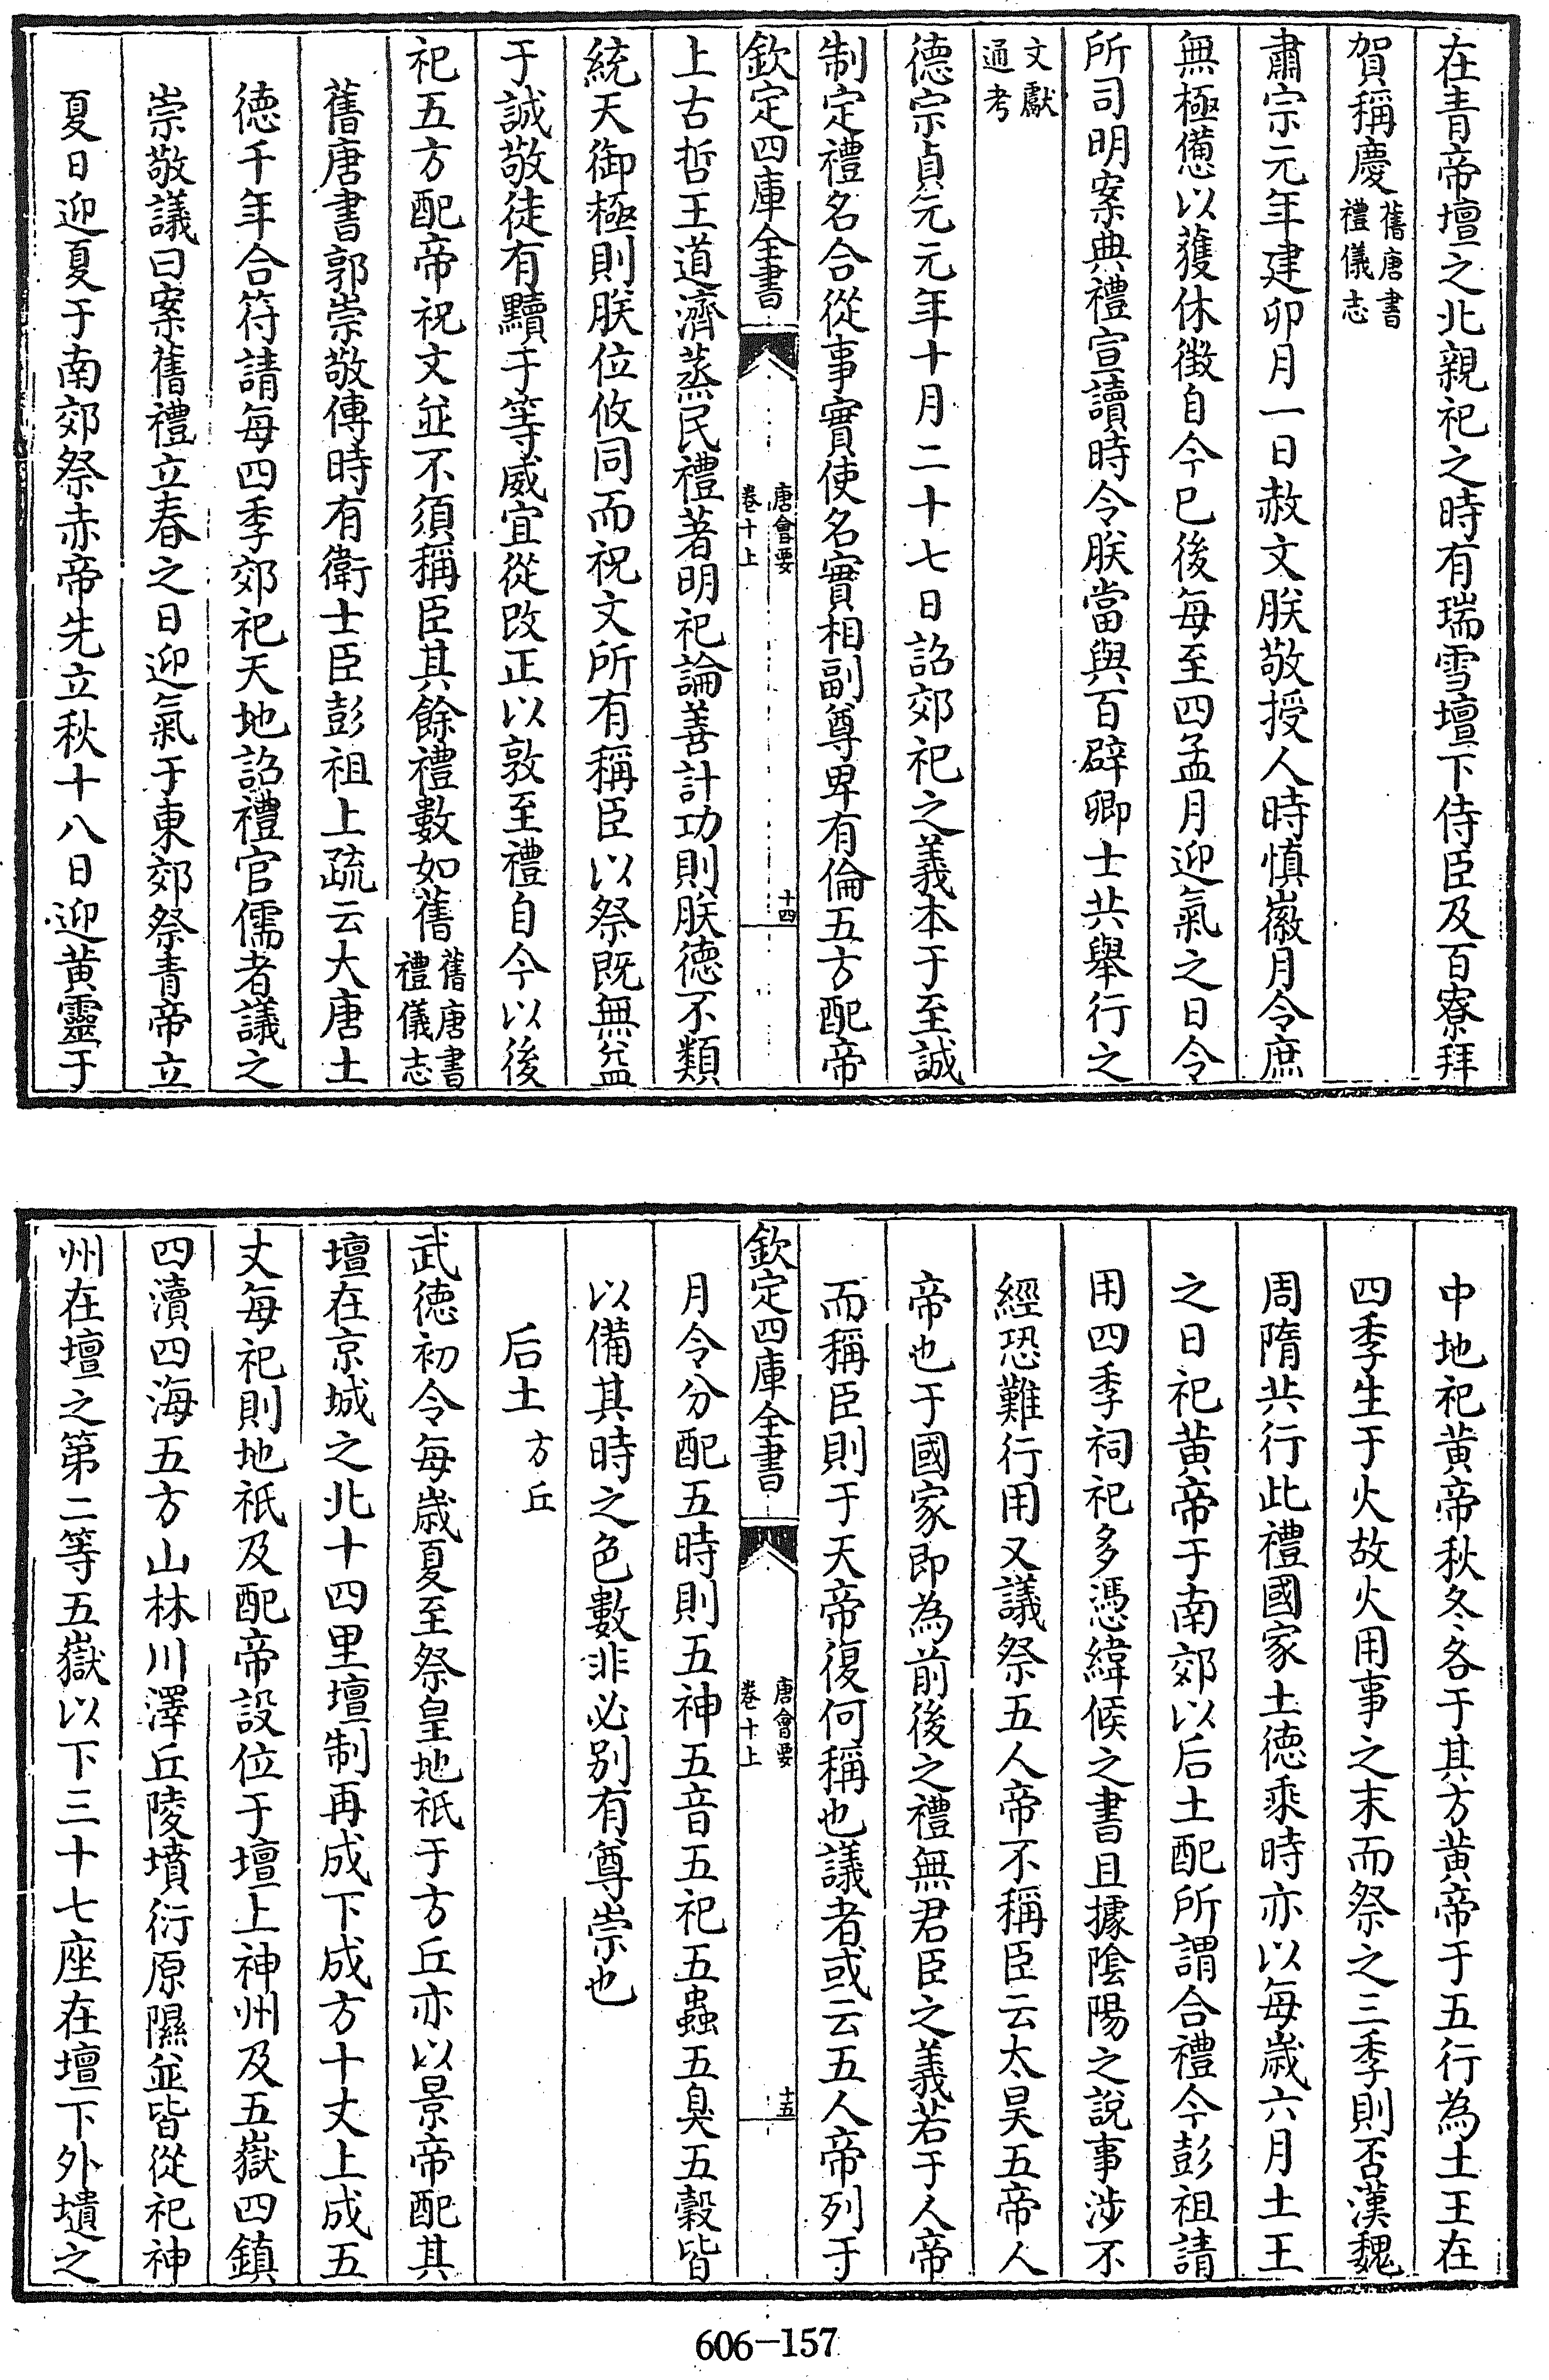 在青帝壇之北親祀之時有瑞雪壇下侍臣及百寮拜
賀稱慶舊唐書禮儀志
肅宗元年建卯月一日赦文朕敬授人時慎徽月令庶
無極備以獲休徴自今已後每至四孟月迎氣之日令
所司明案典禮宣讀時令朕當與百辟卿士共舉行之
文獻通考
德宗貞元元年十月二十七日詔郊祀之義本于至誠
制定禮名合從事實使名實相副尊卑有倫五方配帝
欽定四庫全書
唐會要
卷十上
十四
上古哲王道濟蒸民禮著明祀論善計功則朕德不類
統天御極則朕位攸同而祝文所有稱臣以祭既無益
于誠敬徒有黷于等威宜從改正以敦至禮自今以後
祀五方配帝祝文並不須稱臣其餘禮數如舊舊唐書禮儀志
舊唐書郭崇敬傳時有衛士臣彭祖上疏云大唐土
德千年合符請每四季郊祀天地詔禮官儒者議之
崇敬議曰案舊禮立春之日迎氣于東郊祭青帝立
夏日迎夏于南郊祭赤帝先立秋十八日迎黄靈于
中地祀黄帝秋冬各于其方黄帝于五行為土王在
四季生于火故火用事之末而祭之三季則否漢魏
周隋共行此禮國家土德乘時亦以每歲六月土王
之日祀黄帝于南郊以后土配所謂合禮今彭祖請
用四季祠祀多憑緯候之書且據陰陽之說事涉不
經恐難行用又議祭五人帝不稱臣云太昊五帝人
帝也于國家即為前後之禮無君臣之義若于人帝
而稱臣則于天帝復何稱也議者或云五人帝列于
欽定四庫全書
唐會要
卷十上
十五
月令分配五時則五神五音五祀五蟲五臭五穀皆
以備其時之色數非必别有尊崇也
后土 方丘
武德初令每歲夏至祭皇地祇于方丘亦以景帝配其
壇在京城之北十四里壇制再成下成方十丈上成五
丈每祀則地祇及配帝設位于壇上神州及五嶽四鎮
四瀆四海五方山林川澤丘陵墳衍原隰並皆從祀神
州在壇之第二等五嶽以下三十七座在壇下外壝之
606-157